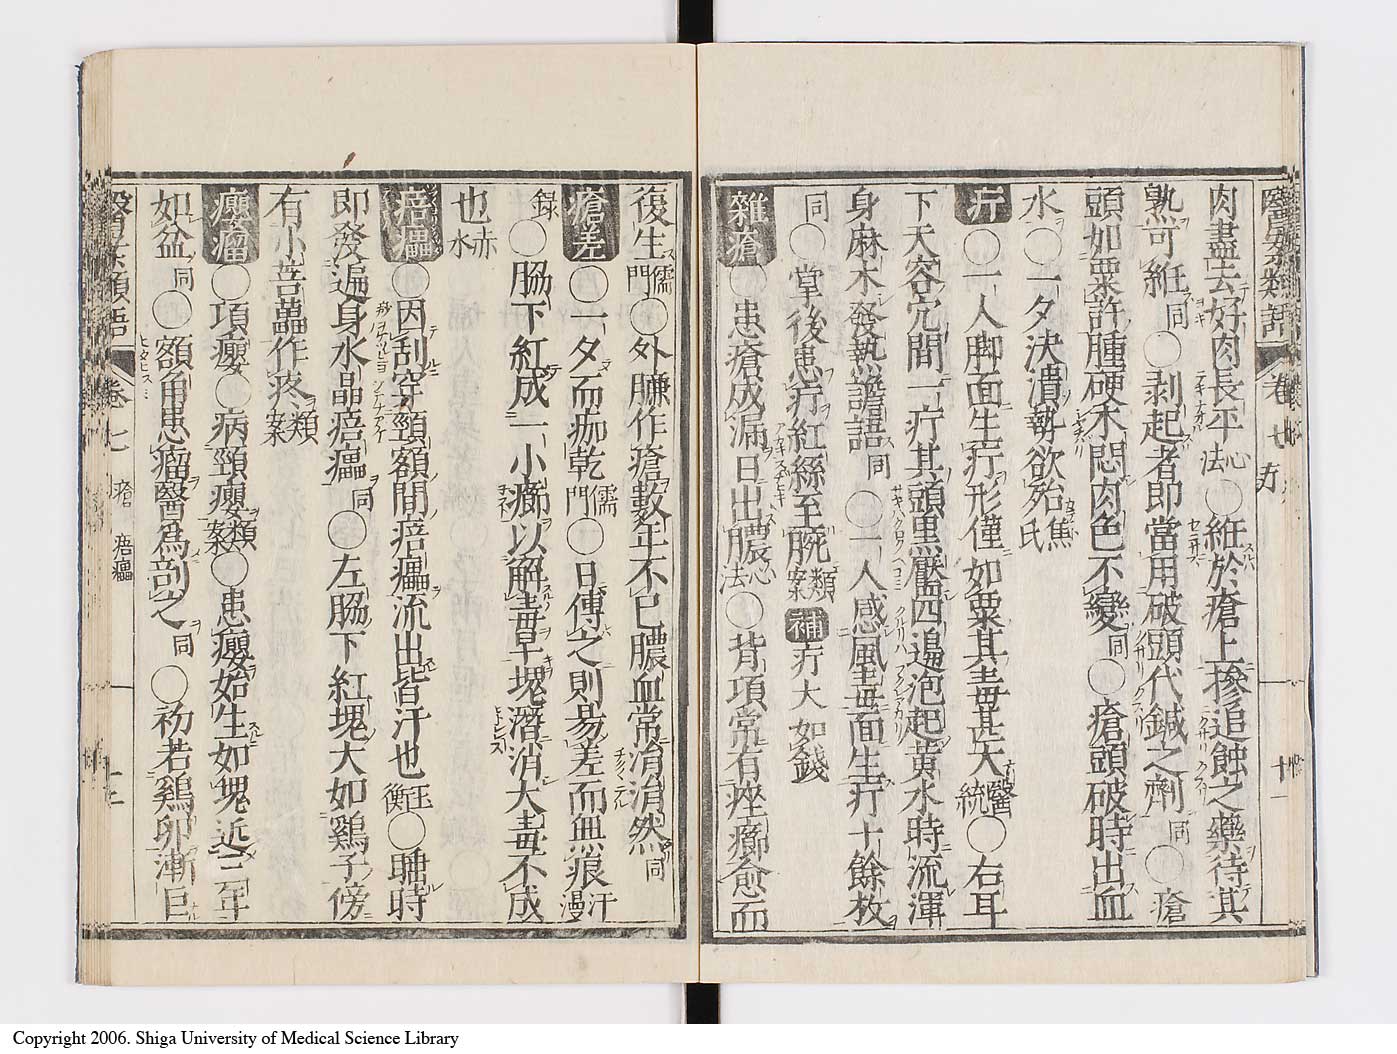 醫案類語 卷七 疔 十一
肉盡去好肉長平心法○紝於瘡上摻追蝕之藥待其
熟可紝同○剥起者即當用破頭代鍼之劑同○瘡
頭如粟許腫硬木悶肉色不變同○瘡頭破時出血
水○一夕決潰勢欲殆焦氏
疔○一人脚面生疔形僅如粟其毒甚大醫統○右耳
下天容穴間一疔其頭黒靨四邊泡起黄水時流渾
身麻木發熱譫語同○一人感風毒面生疔十餘枚
同○掌後患疔紅絲至腕類案 補 疔大如錢
雜瘡○患瘡成漏日出膿心法○背項常有痤癤愈而
復生儒門○外臁作瘡數年不已膿血常涓涓然同
瘡差○一夕而痂乾儒門○日傅之則易差而無痕汗漫
錄○脇下紅成一小癤以解毒早塊潛消大毒不成
也赤水
㾦㿔○因刮穿頸額間㾦㿔流出皆汗也玉衡○睡時
即發遍身水晶㾦㿔同○左脇下紅塊大如鷄子傍
有小菩蕌作疼類案
癭瘤○項癭○病頸癭類案○患癭始生如塊近二年
如盆同○額角患瘤醫爲剖之同○初若鷄卵漸巨
醫案類語 卷七 瘡 㾦㿔 十二
Copyright 2006. Shiga University of Medical Science Library